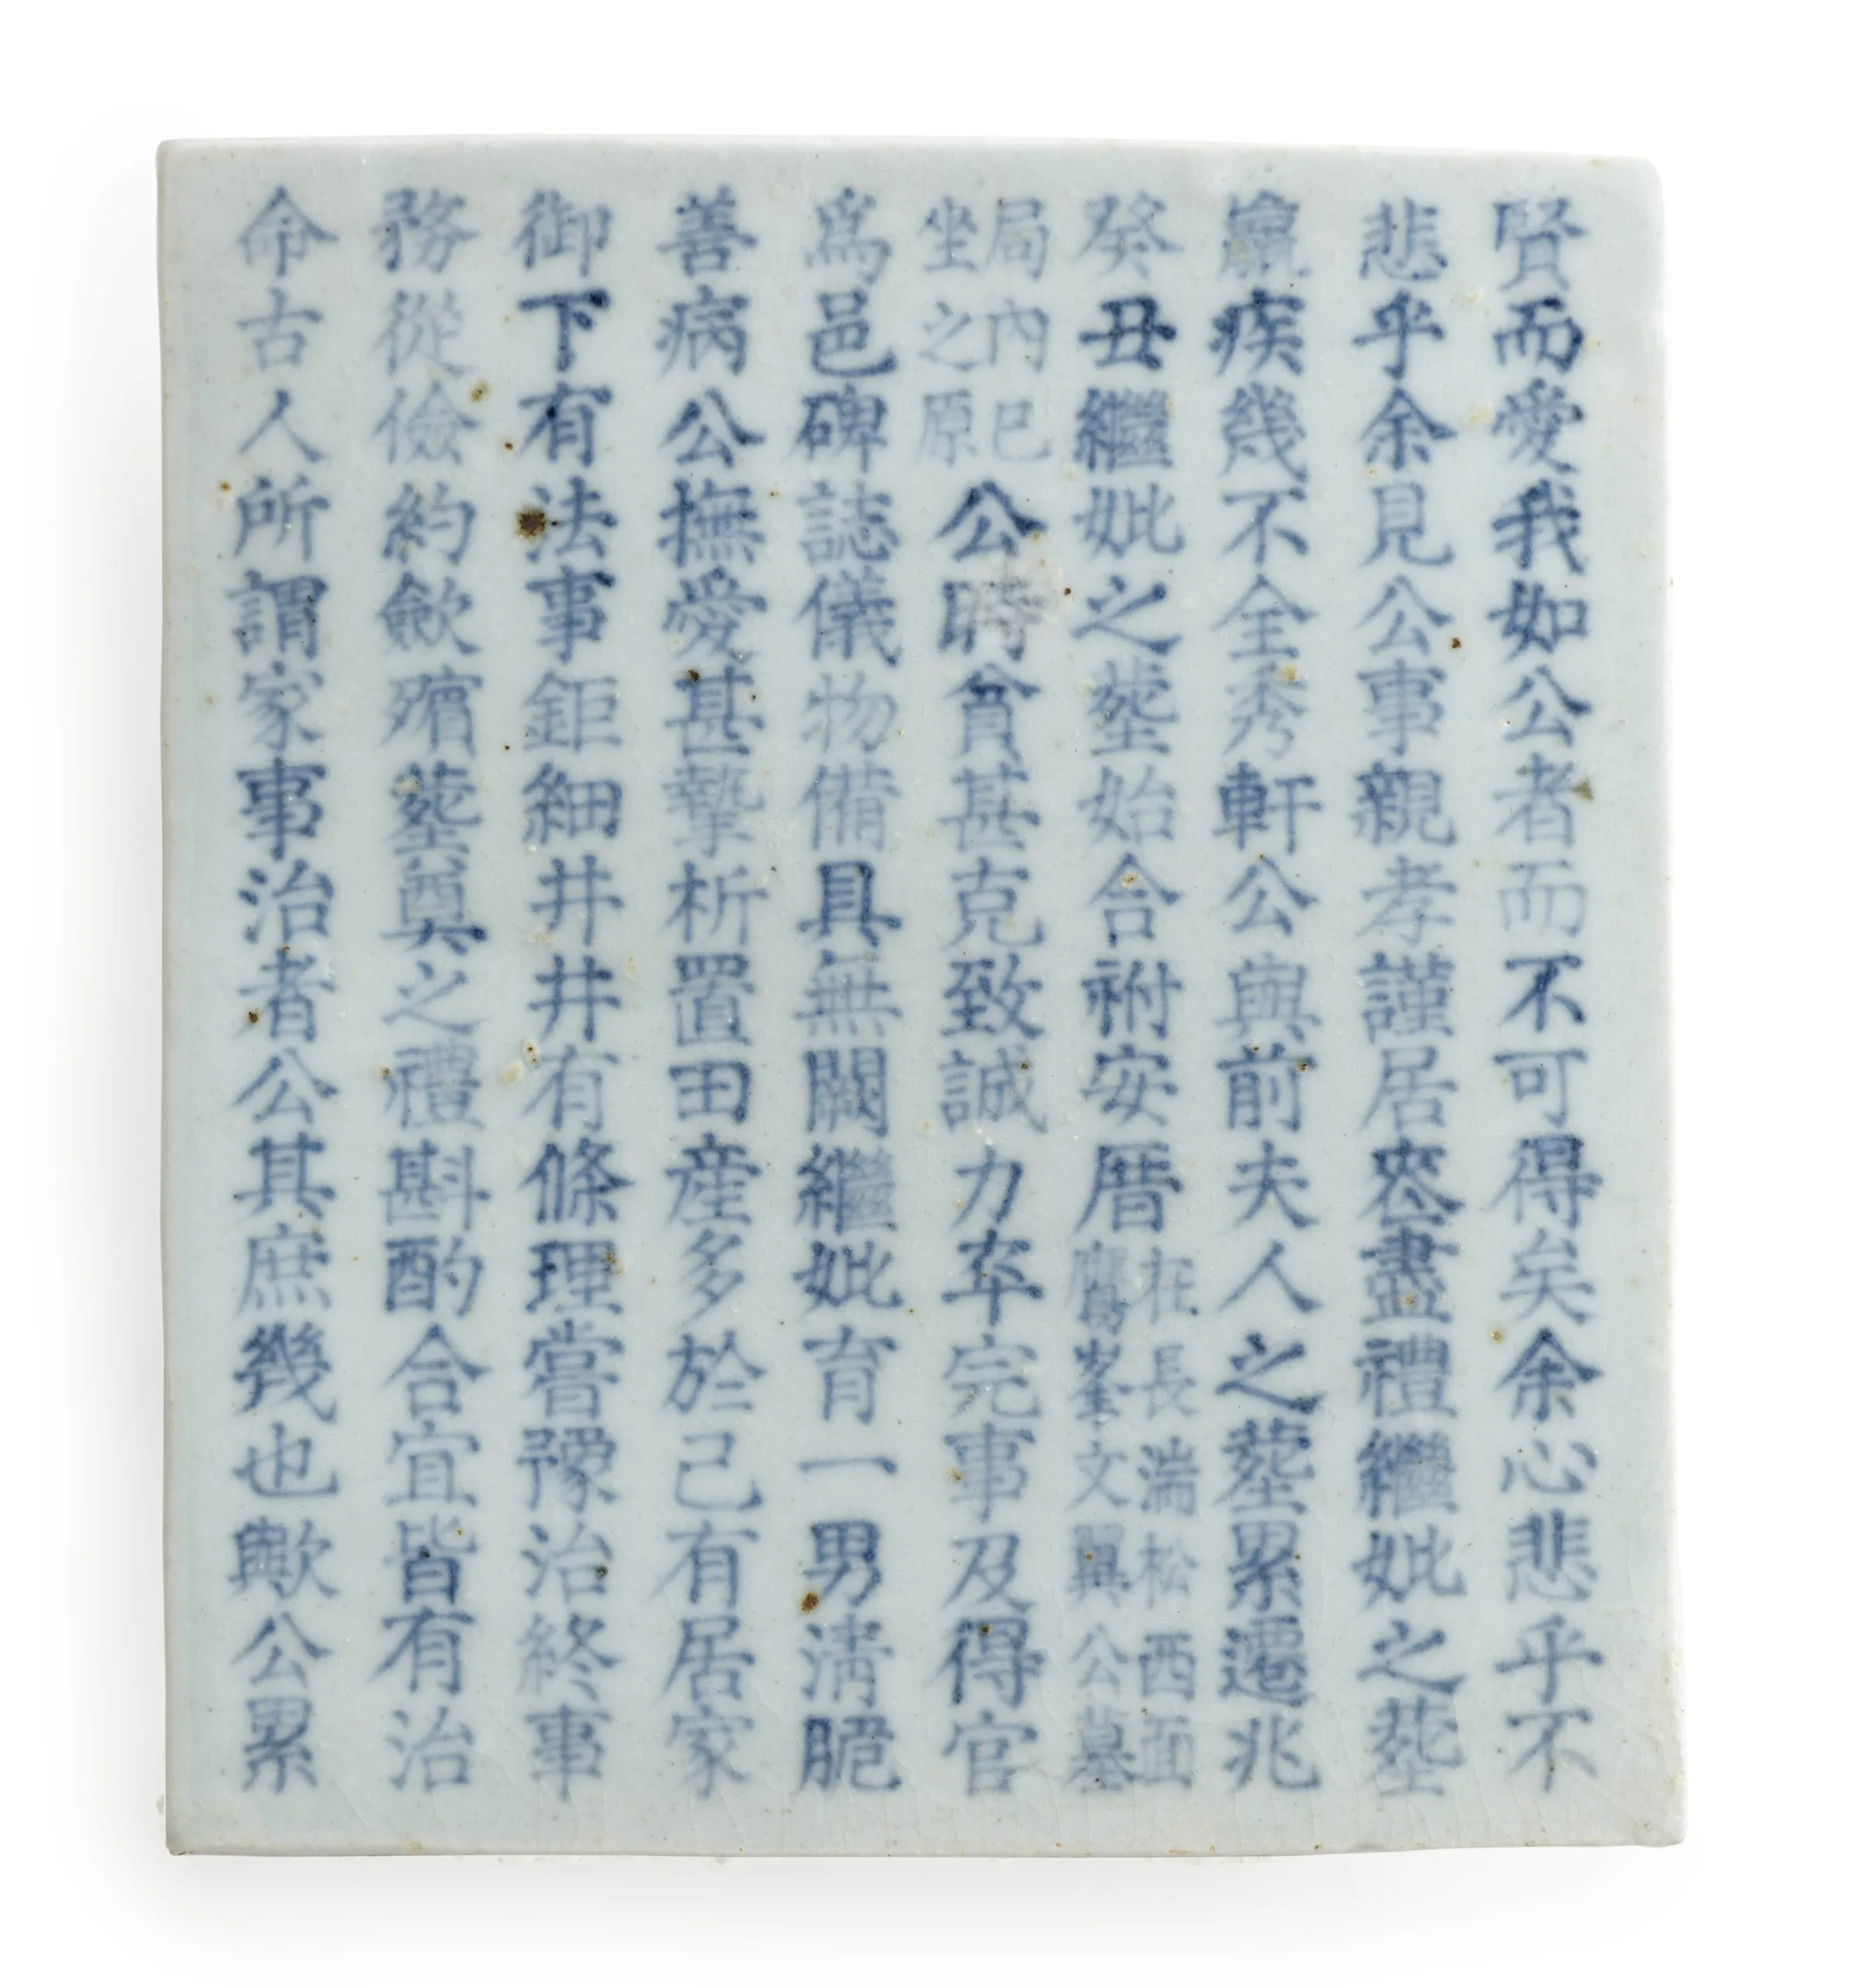 賢而愛我如公者而不可得矣余心悲乎不
悲乎余見公事親孝謹居喪盡禮繼妣之葬
羸疾幾不全秀軒公與前夫人之葬累遷兆
癸丑繼妣之葬始合祔安厝在長湍松西面鷹峯文翼公墓
局內巳坐之原公時貧甚克致誠力卒完事及得官
爲邑碑誌儀物備具無闕繼妣育一男淸脆
善病公撫愛甚摯析置田産多於己有居家
御下有法事鉅細井井有條理嘗豫治終事
務從儉約歛殯葬奠之禮斟酌合宜皆有治
命古人所謂家事治者公其庶幾也歟公累